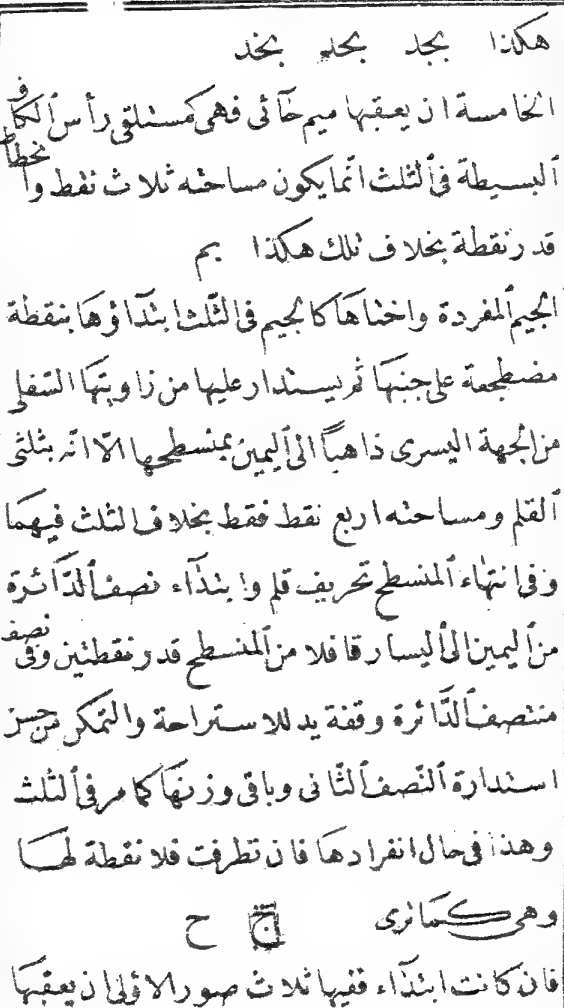 هكذا بجد بحد بخد
الخامسة ان يعقبها ميم خآئى فهى كمستلقى رأس الكاف
البسيطة فى الثلث انما يكون مساحته ثلاث نقط وانحطاط
قدر نقطة بخلاف تلك هكذا بم
الجيم المفردة واختاها كالجيم فى الثلث ابتدآؤها بنقطة
مضطجعة على جنبها ثم يستدار عليها من زاويتها السفلى
من الجهة اليسرى ذاهباً الى اليمين بمنسطحها الا انه بثلثى
القلم ومساحته اربع نقط فقط بخلاف الثلث فيهما
وفى انتهاء المنسطح تحريف قلم وابتدآء نصف الدآئرة
من اليمين الى اليسار قافلا من المنسطح قدر نقطتين وفى نصف
منتصف الدآئرة وقفة يد للاستراحة والتمكن من حسن
استدارة النصف الثانى وباقى وزنها كما مر فى الثلث
وهذا فى حال انفرادها فان تطرفت فلا نقطة لها
وهى كما ترى ج ح
فان كانت ابتدآء ففيها ثلاث صور الاولى ان يعقبها